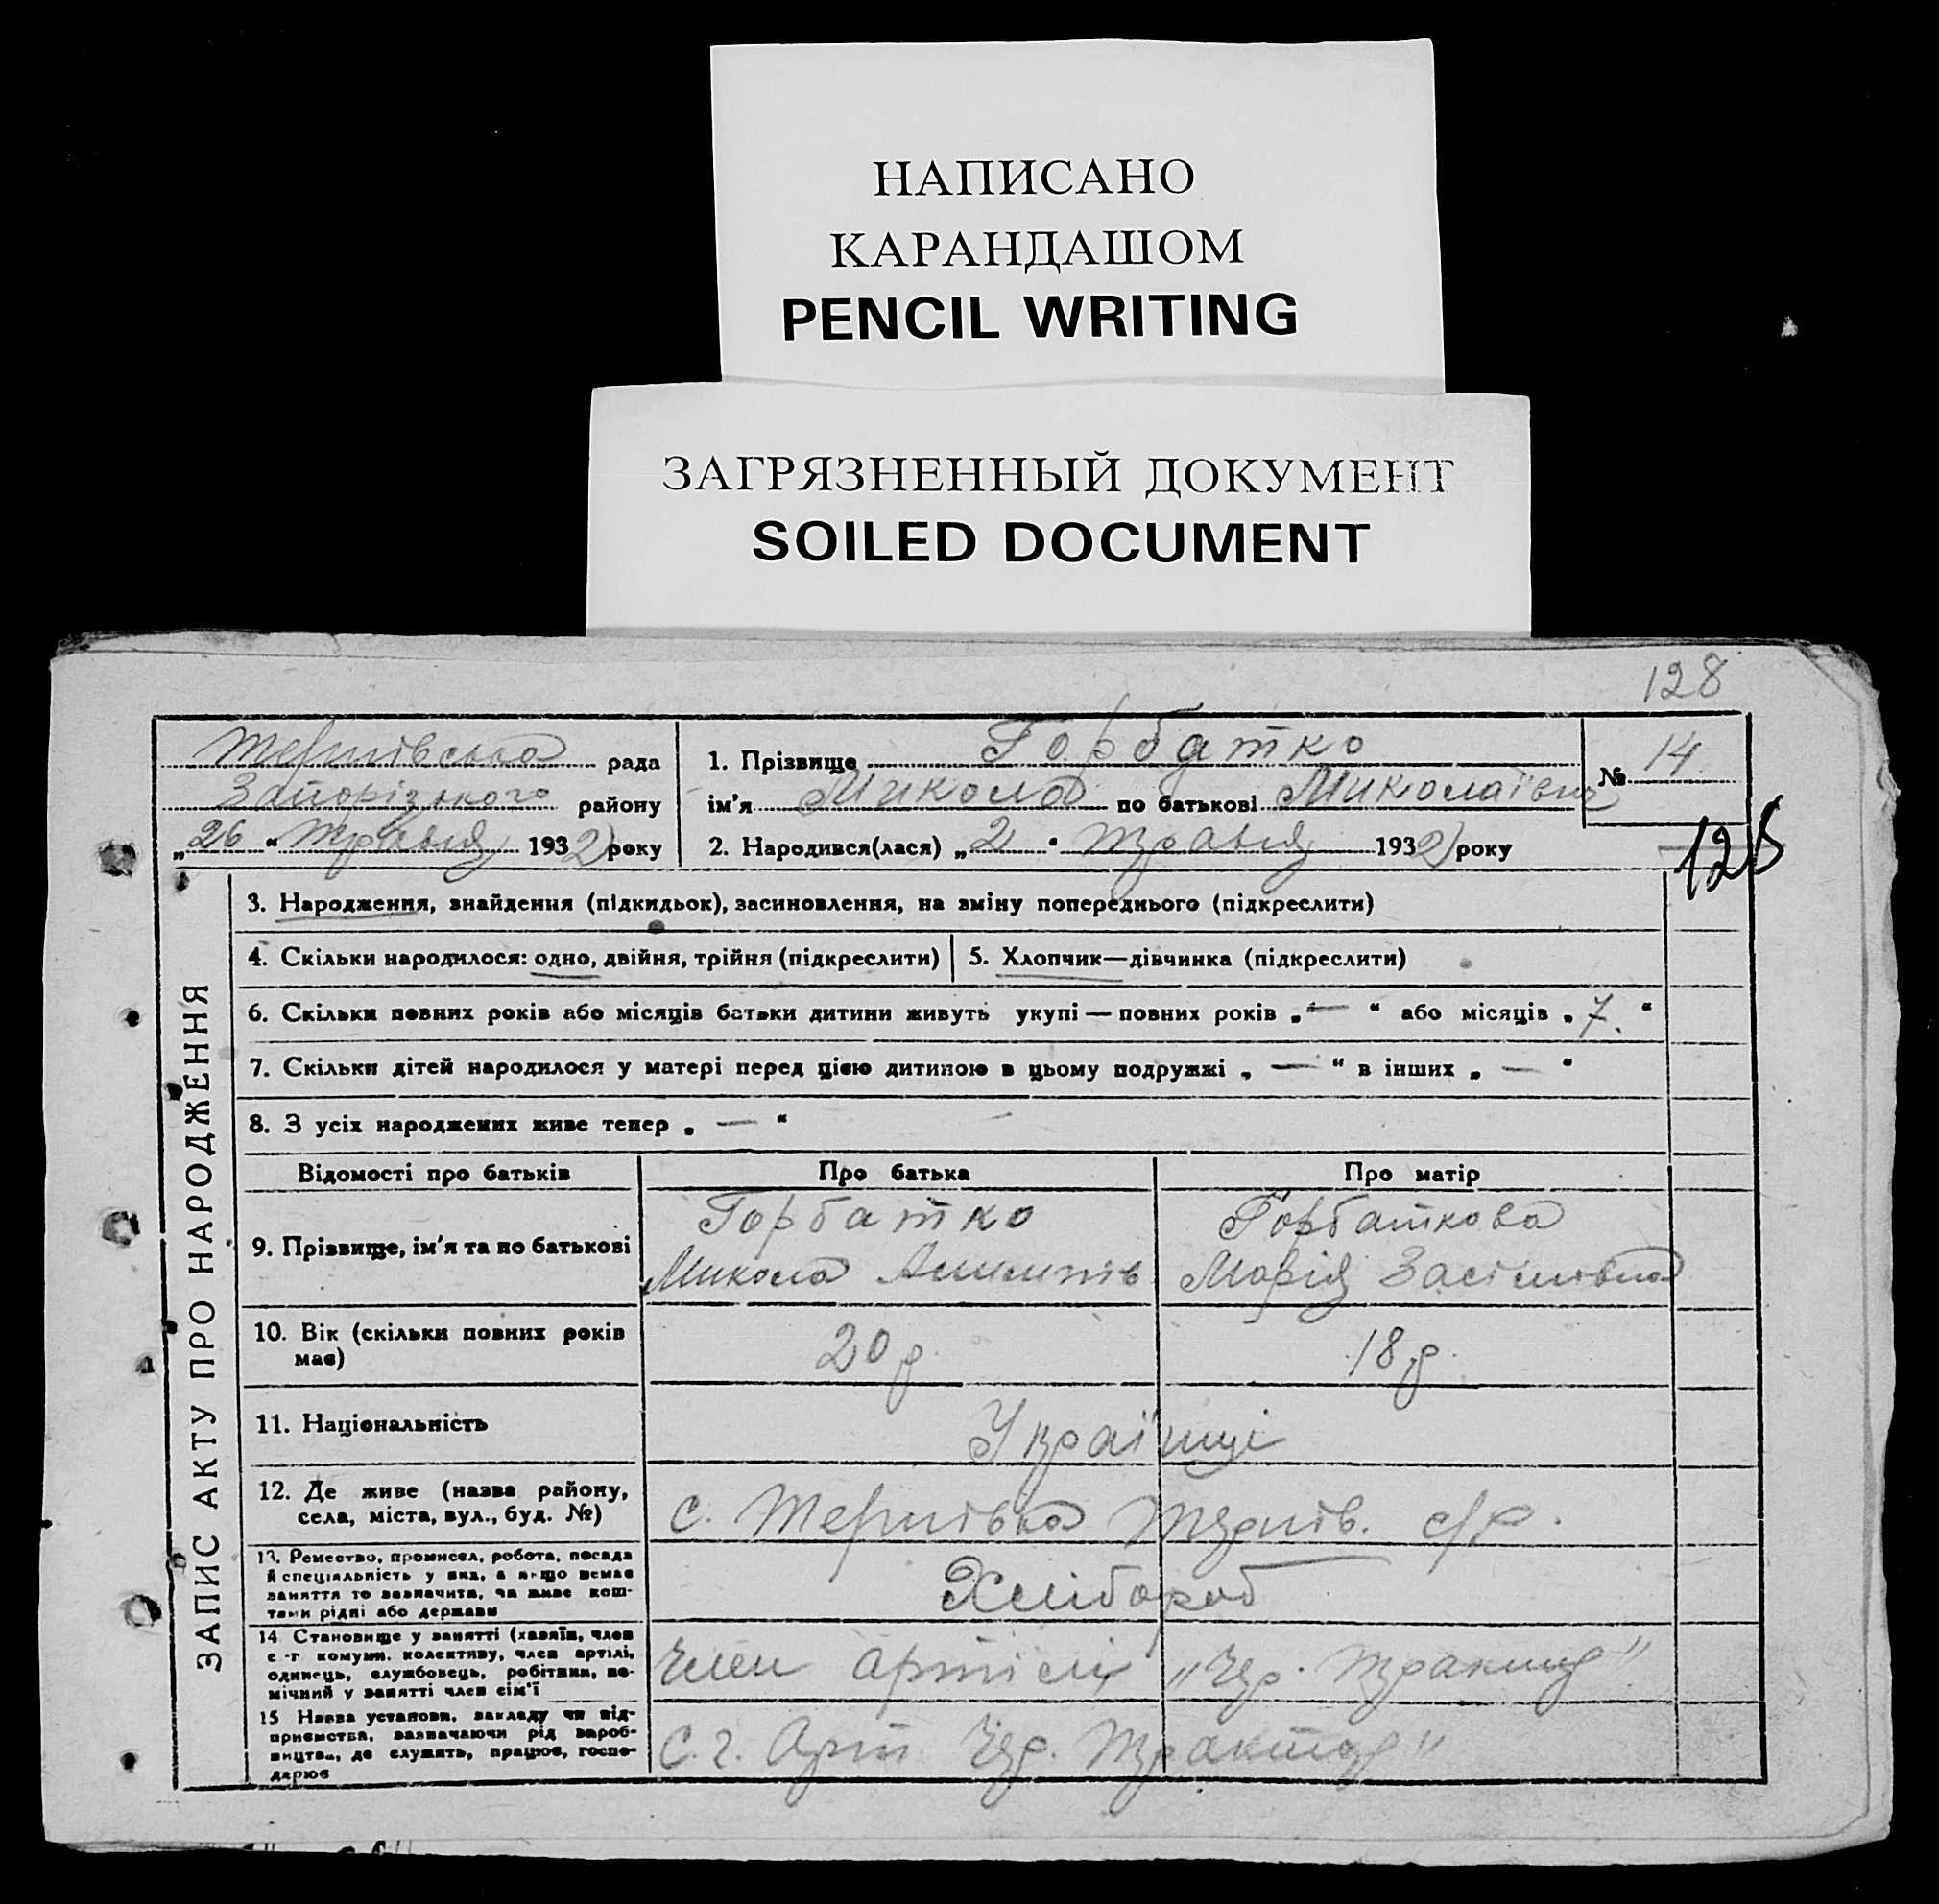 НАПИСАНО
КАРАНДАШОМ
PENCIL WRITING
ЗАГРЯЗНЕННЫЙ ДОКУМЕНТ
SOILED DOCUMENT
128
Терпівська рада
Запорізького району
„26“ Травня 1932 року
1. Прізвище Горбатко
ім'я Микола по батькові Миколаївич
2. Народився(лася) „2“ травня 1932 року
№ 14
ЗАПИС АКТУ ПРО НАРОДЖЕННЯ
3. Народження, знайдення (підкидьок), засиновлення, на зміну попереднього (підкреслити)
4. Скільки народилося: одно, двійня, трійня (підкреслити)
5. Хлопчик—дівчинка (підкреслити)
6. Скільки повних років або місяців батьки дитини живуть укупі — повних років „—“ або місяців „7.“
7. Скільки дітей народилося у матері перед цією дитиною в цьому подружжі „—“ в інших „—“
8. З усіх народжених живе тепер „—“
Відомості про батьків
Про батька
Про матір
9. Прізвище, ім'я та по батькові
Горбатко
Микола
Горбаткова
Марія
10. Вік (скільки повних років
має)
20 р.
18 р.
11. Національність
Українці
12. Де живе (назва району,
села, міста, вул., буд. №)
с. Терпівка с/р.
13. Ремество, промисел, робота, посада
й спеціяльність у них, а якщо немає
заняття то зазначити, чи живе кош-
тами рідні або держави
Хлібороб
14. Становище у занятті (хазяїн, член
с.-г комуни, колективу, член артілі,
одинець, службовець, робітник, по-
мічний у занятті член сім'ї
Член артіли „Чер. трактор“
15 Назва установи, закладу чи під-
приємства, зазначаючи рід вироб-
ництва, де служить, працює, госпо-
дарює
С.г. Арт Чер. Трактор“